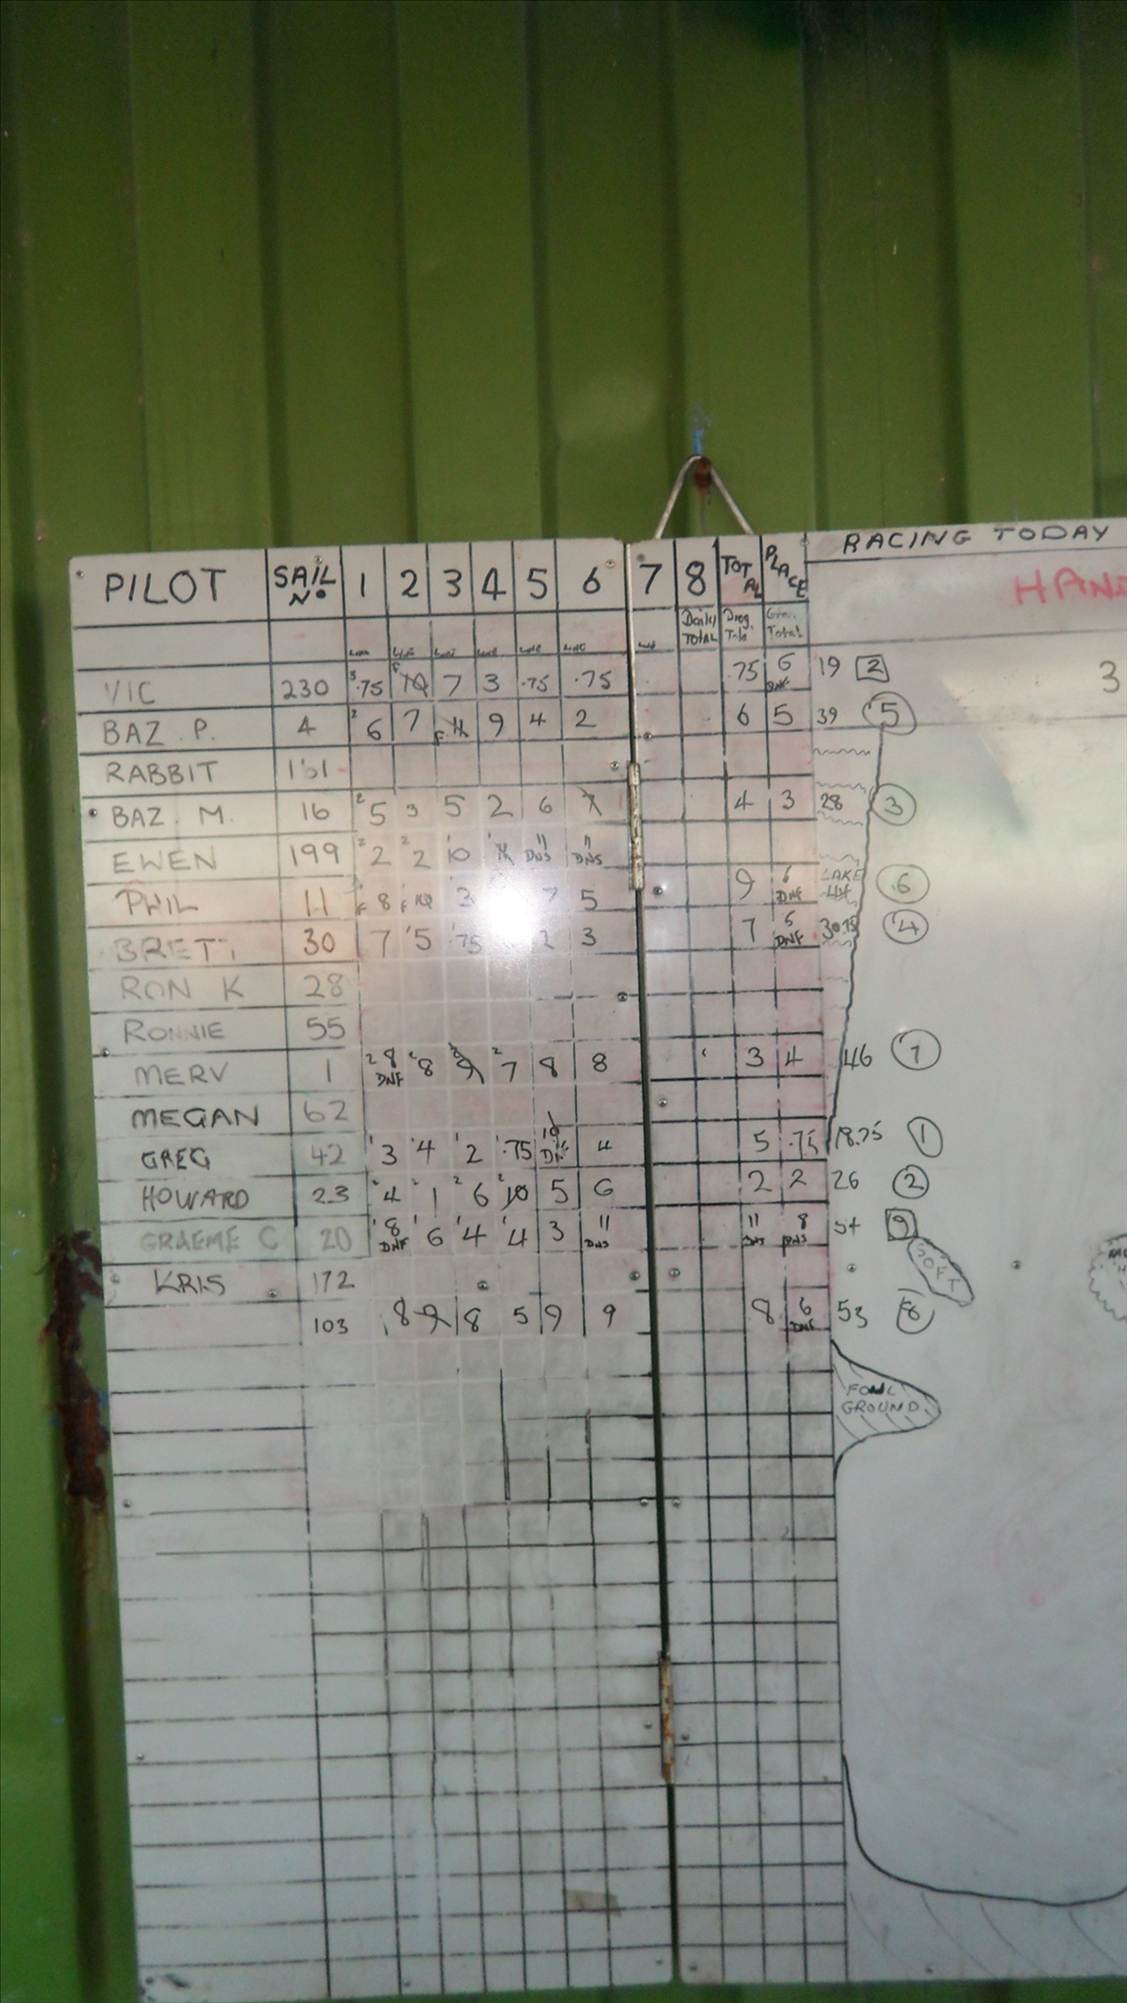 PILOT SAIL Nº 1 2 3 4 5 6 7 8 TOTAL PLACE RACING TODAY
Daily TOTAL Prog. Total
VIC 230 .75 7 3 .75 .75 .75 6 DNF 19 2
3
BAZ. P. 4 6 7 9 4 2 6 5 39 5
RABBIT 161
BAZ. M. 16 5 3 5 2 6 7 4 3 28 3
EWEN 199 2 2 10 11 DNS 11 DNS
PHIL 11 8 3 7 5 9 6 DNF LAKE 6
BRETT 30 7 5 .75 2 3 7 5 DNF 30.75 4
RON K 28
RONNIE 55
MERV 1 8 DNF 8 9 7 8 8 3 4 46 7
MEGAN 62
GREG 42 3 4 2 .75 10 4 5 .75 18.75 1
HOWARD 23 4 1 6 10 5 6 2 2 26 2
GRAEME C 20 8 DNF 6 4 4 3 11 DNS 11 DNS 8 DNS 54 9
SOFT
KRIS 172
103 8 9 8 5 9 9 8 6 DNF 53 8
FOUL
GROUND